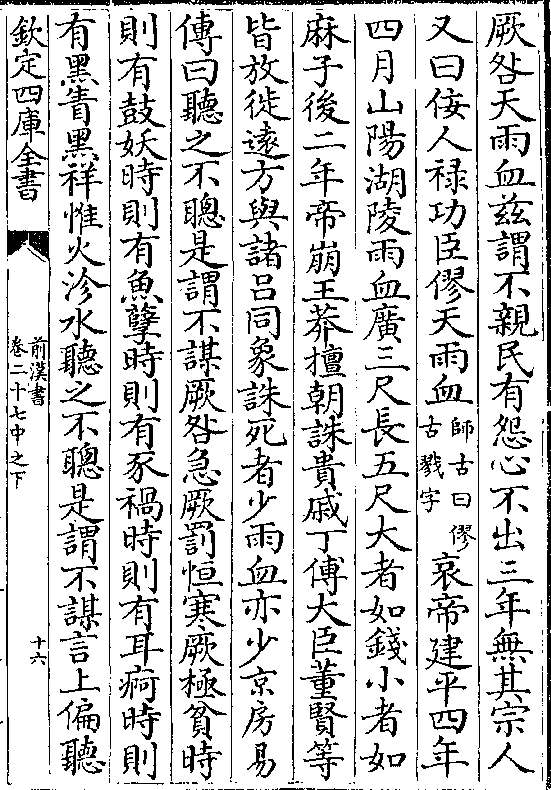 厥咎天雨血兹謂不親民有怨心不出三年無其宗人
又曰佞人禄功臣僇天雨血師古曰僇古戮字哀帝建平四年
四月山陽湖陵雨血廣三尺長五尺大者如錢小者如
麻子後二年帝崩王莽擅朝誅貴戚丁傅大臣董賢等
皆放徙遠方與諸吕同象誅死者少雨血亦少京房易
傳曰聽之不聰是謂不謀厥咎急厥罰恒寒厥極貧時
則有鼓妖時則有魚孽時則有豕禍時則有耳痾時則
有黑眚黑祥惟火沴水聽之不聰是謂不謀言上偏聽
欽定四庫全書
前漢書
卷二十七中之下
十六